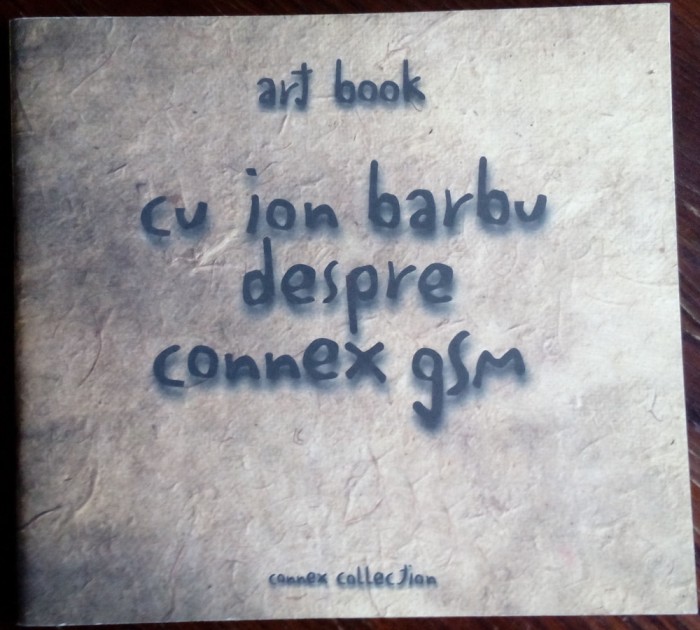 art book
cu ion barbu
despre
connex gsm
connex collection